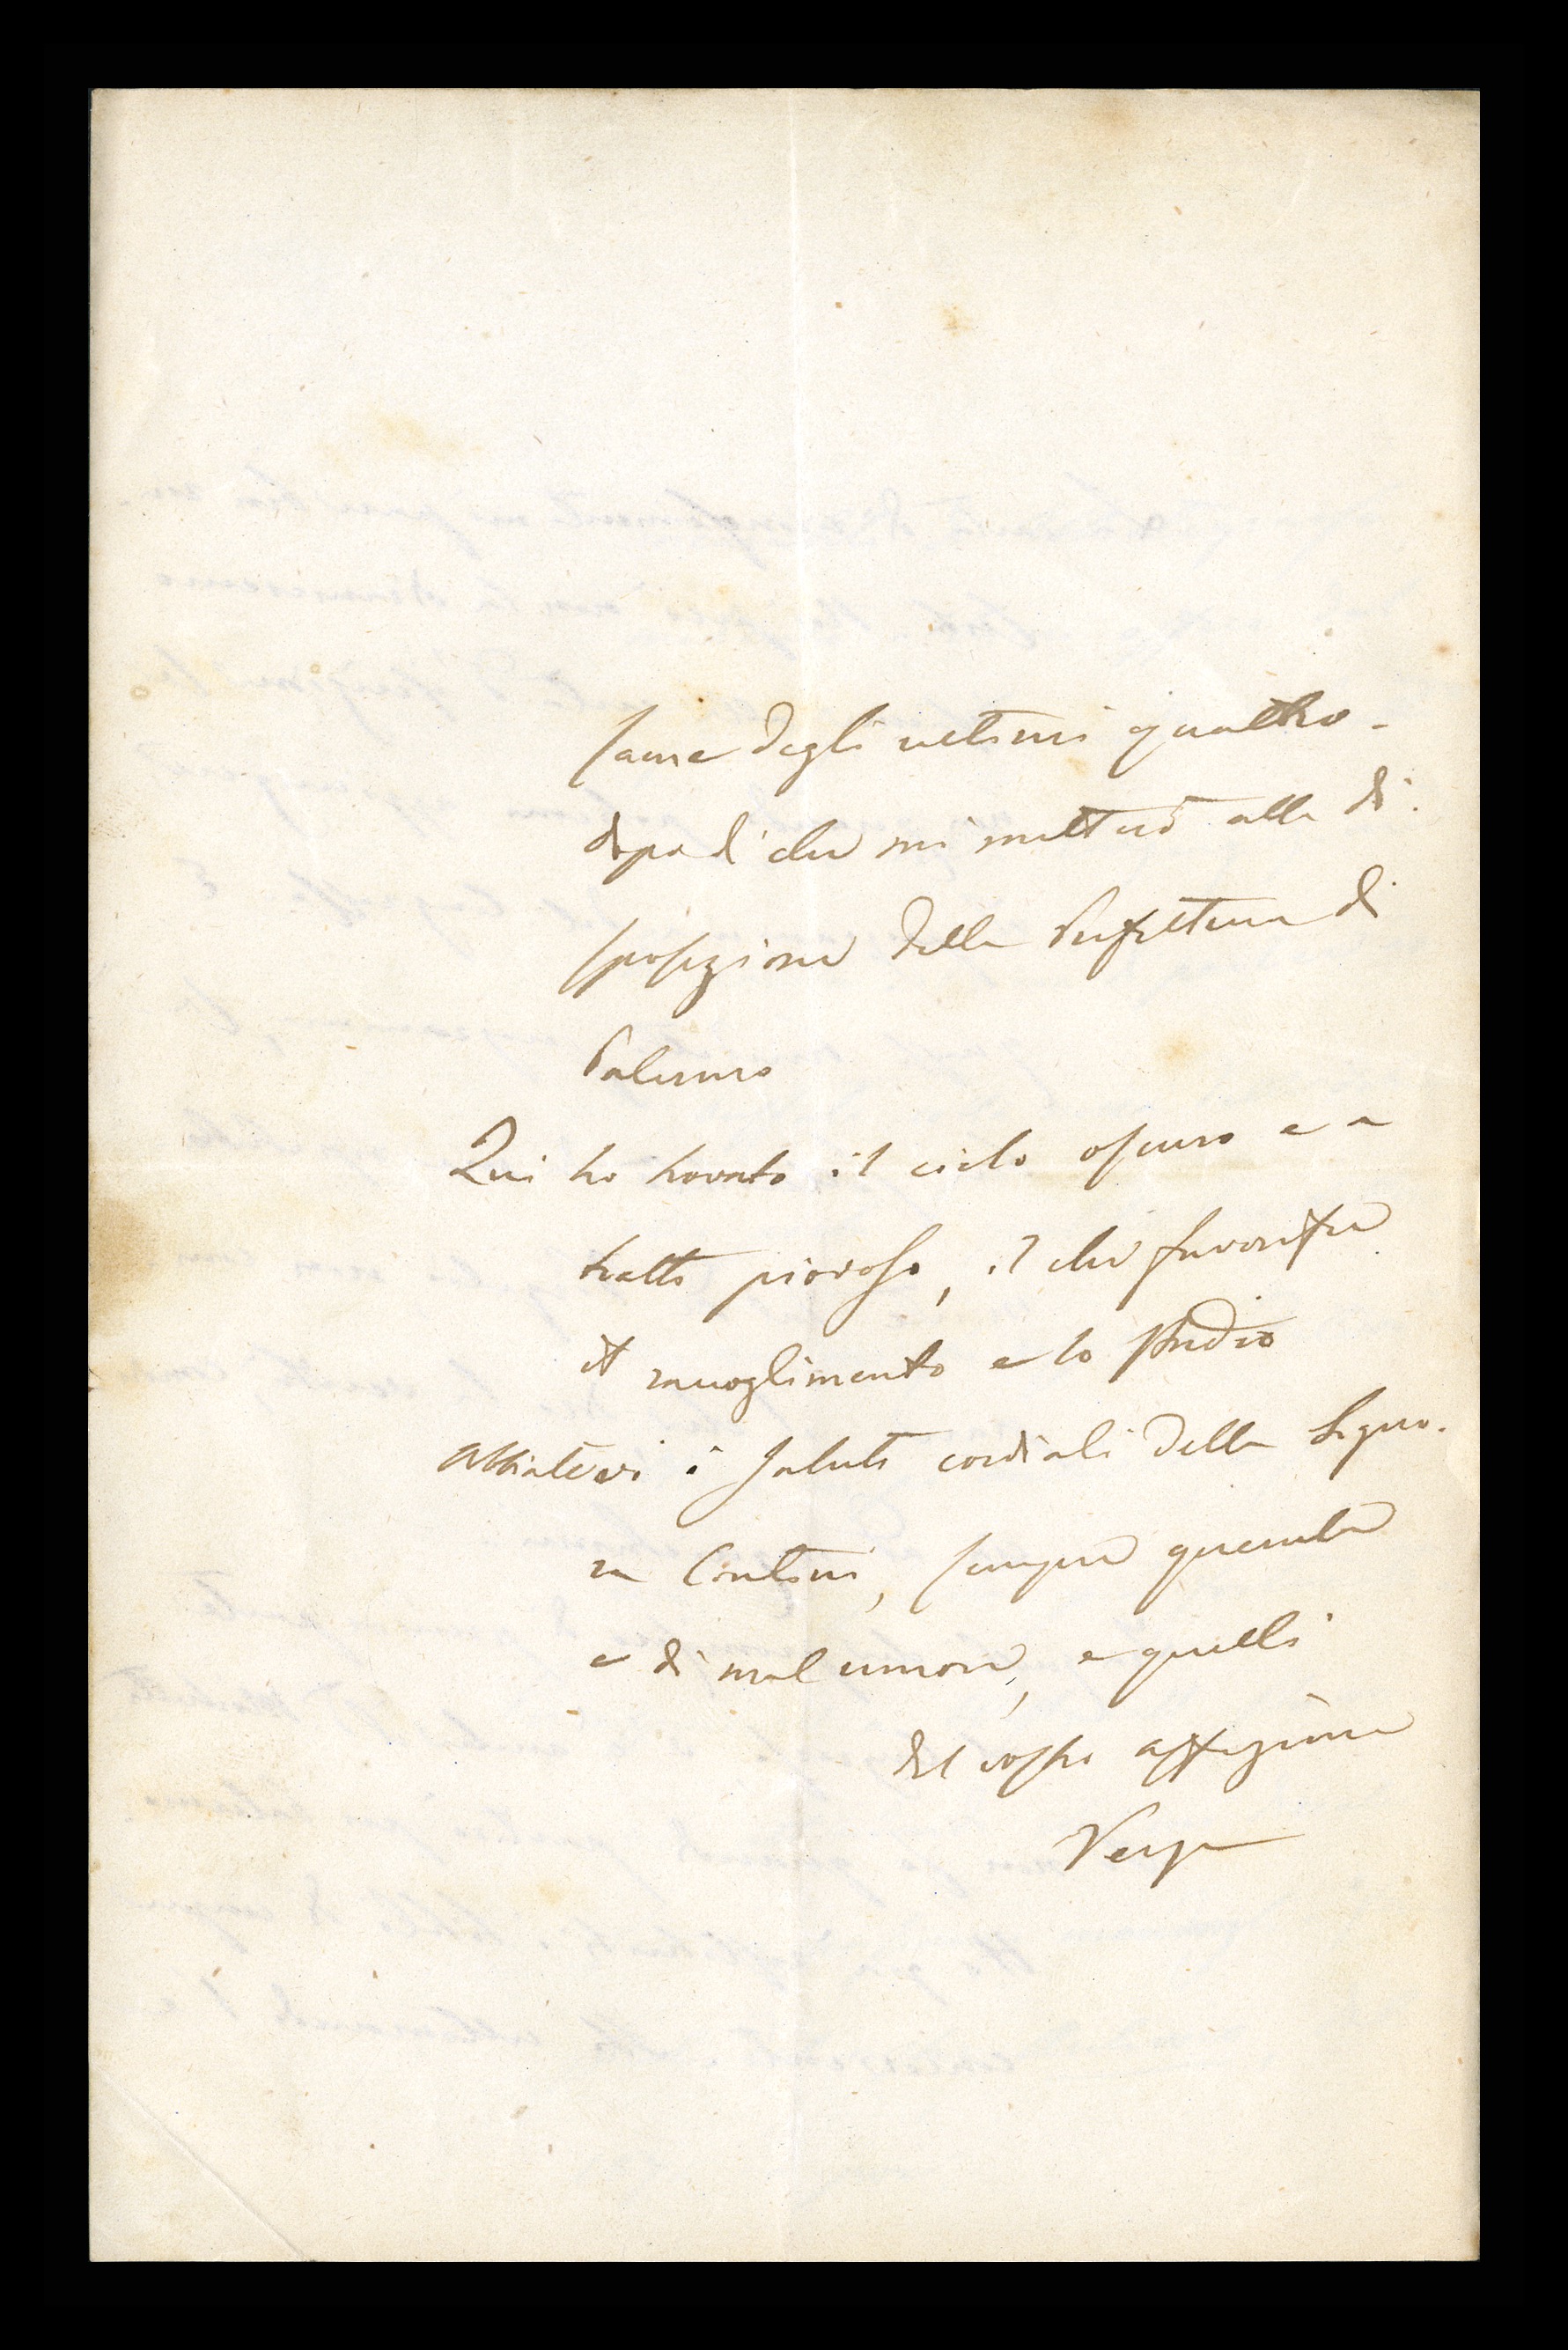 fame degli ultimi quattro -
dopo di che mi metterò alla di-
sposizione della Prefettura di
Palermo
Qui ho trovato il cielo oscuro e a
tratti piovoso, il che favorisce
il raccoglimento e lo studio
Abbiatevi i saluti cordiali della Signo-
ra Contini, sempre querula
e di mal umore, e quelli
del vostro affezionato
Verga